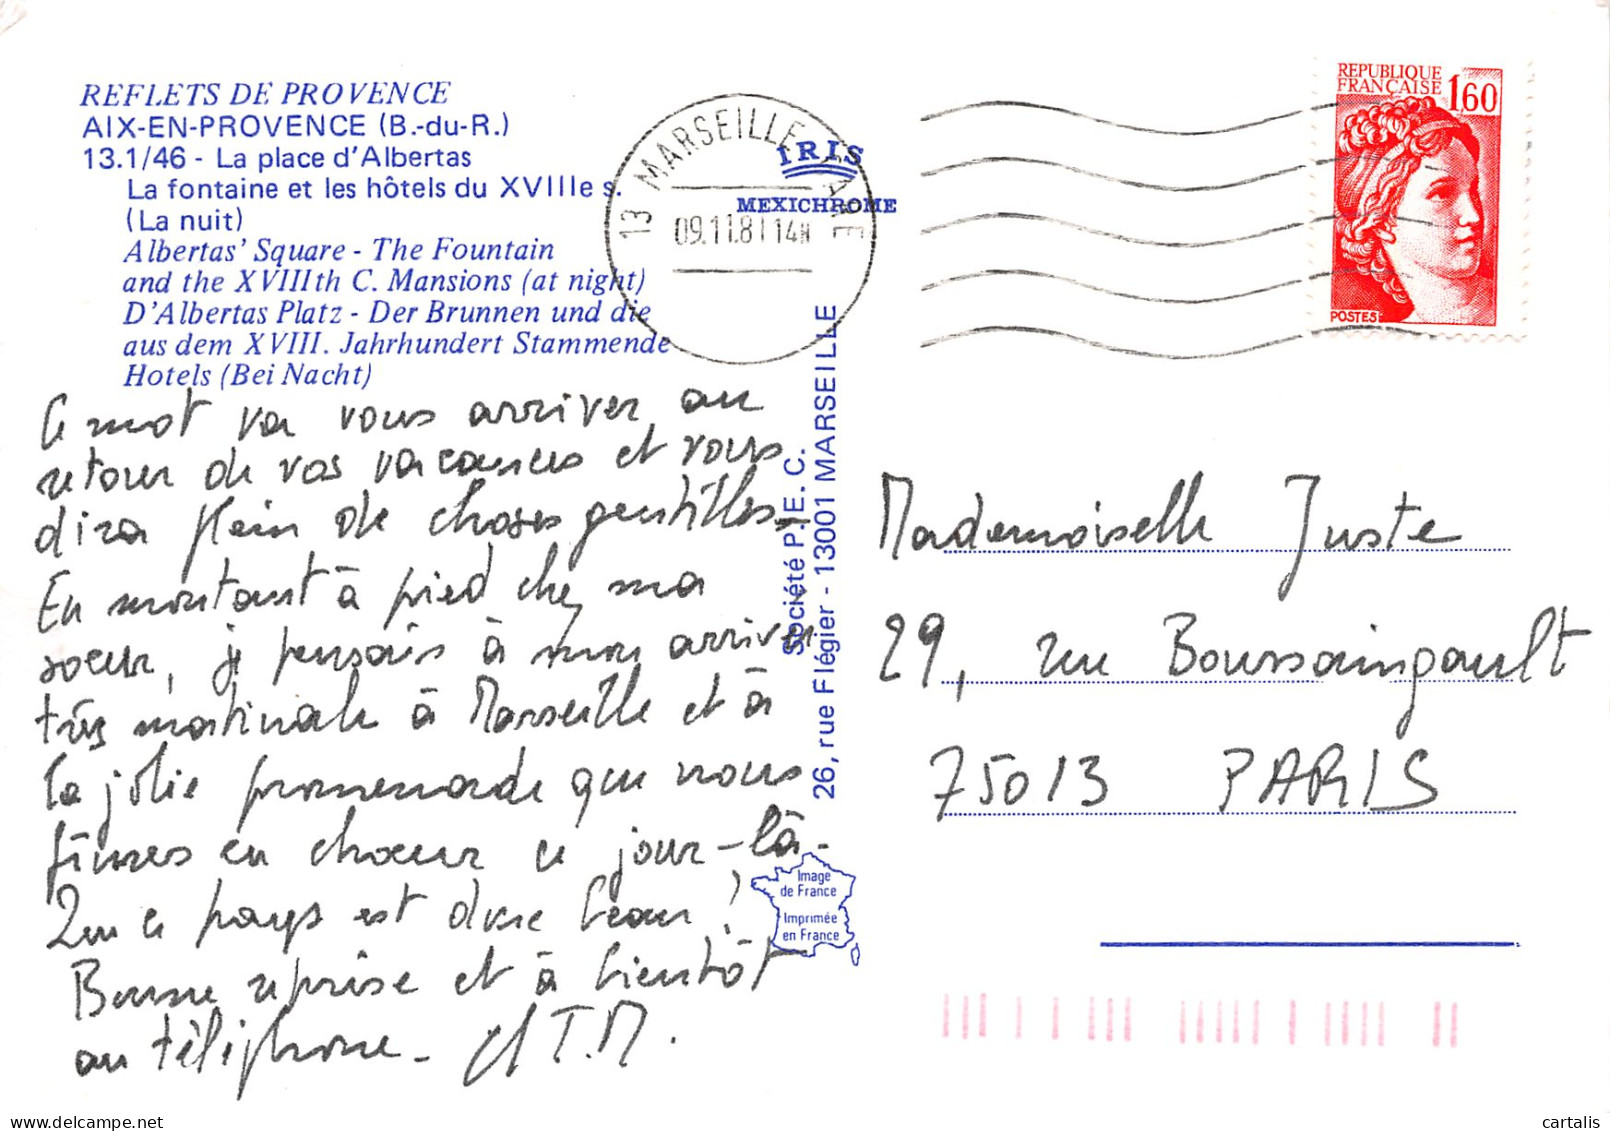 REFLETS DE PROVENCE
AIX-EN-PROVENCE (B.-du-R.)
13.1/46 - La place d'Albertas
La fontaine et les hôtels du XVIIIe s.
(La nuit)
Albertas' Square - The Fountain
and the XVIIIth C. Mansions (at night)
D'Albertas Platz - Der Brunnen und die
aus dem XVIII. Jahrhundert Stammende
Hotels (Bei Nacht)
Ce mot va vous arriver au
retour de vos vacances et vous
dira plein de choses gentilles.
En montant à pied chez ma
soeur, je pensais à mon arrivée
très matinale à Marseille et à
la jolie promenade que nous
fîmes en choeur ce jour-là.
Que ce pays est donc beau!
Bonne reprise et à bientôt
au téléphone. T.M.
13 MARSEILLE GARE
09.11.81 14H
IRIS
MEXICHROME
Société P.E.C.
26, rue Flégier - 13001 MARSEILLE
Image
de France
Imprimée
en France
REPUBLIQUE
FRANÇAISE 1,60
POSTES
Mademoiselle Juste
29, rue Boussaingault
75013 PARIS
cartalis
delcampe.net